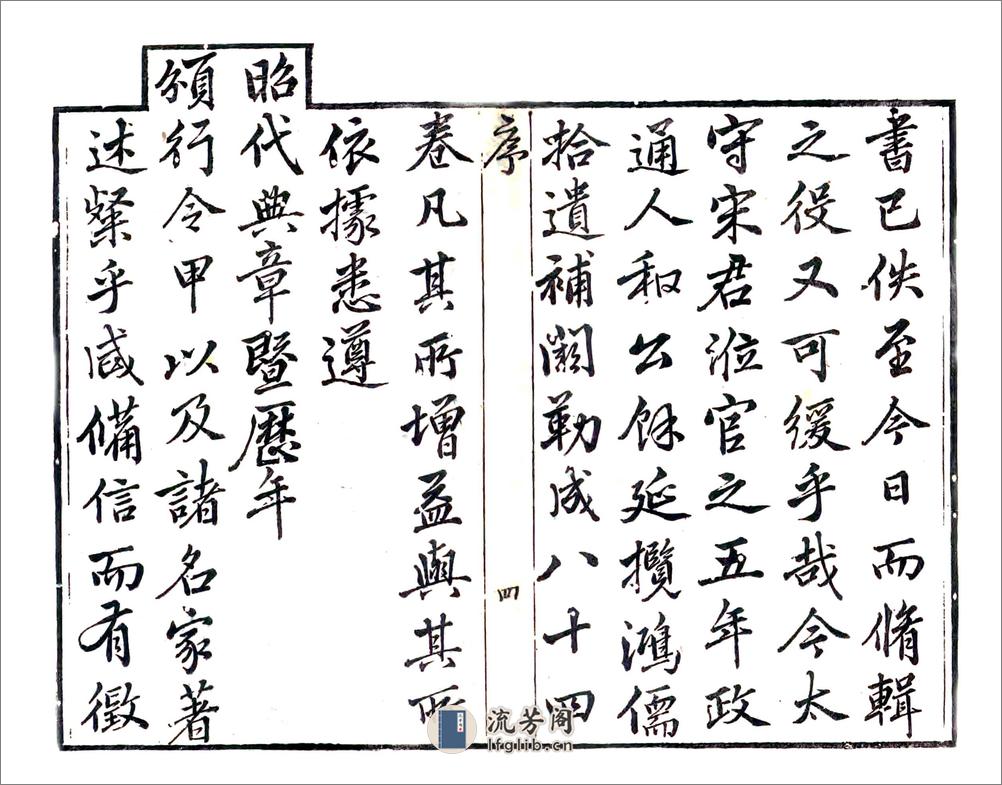 書已佚至今日而脩輯
之役又可緩乎哉今太
守宋君涖官之五年政
通人和公餘延攬鴻儒
拾遺補闕勒成八十四
序
四
卷凡其所增益與其所
依據悉遵
昭代典章暨歷年
頒行令甲以及諸名家著
述粲乎咸備信而有徵
流芳阁
lfglib.cn